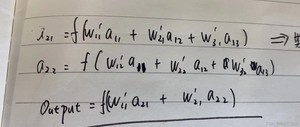 i₂₁ = f(w₁'₁ a₁₁ + w₂'₁ a₁₂ + w₃'₁ a₁₃) ⇒
a₂₂ = f(w₁'₂ a₁₁ + w₂'₂ a₁₂ + w₃'₂ a₁₃)
Output = f(w₁'₁ a₂₁ + w₂'₁ a₂₂)